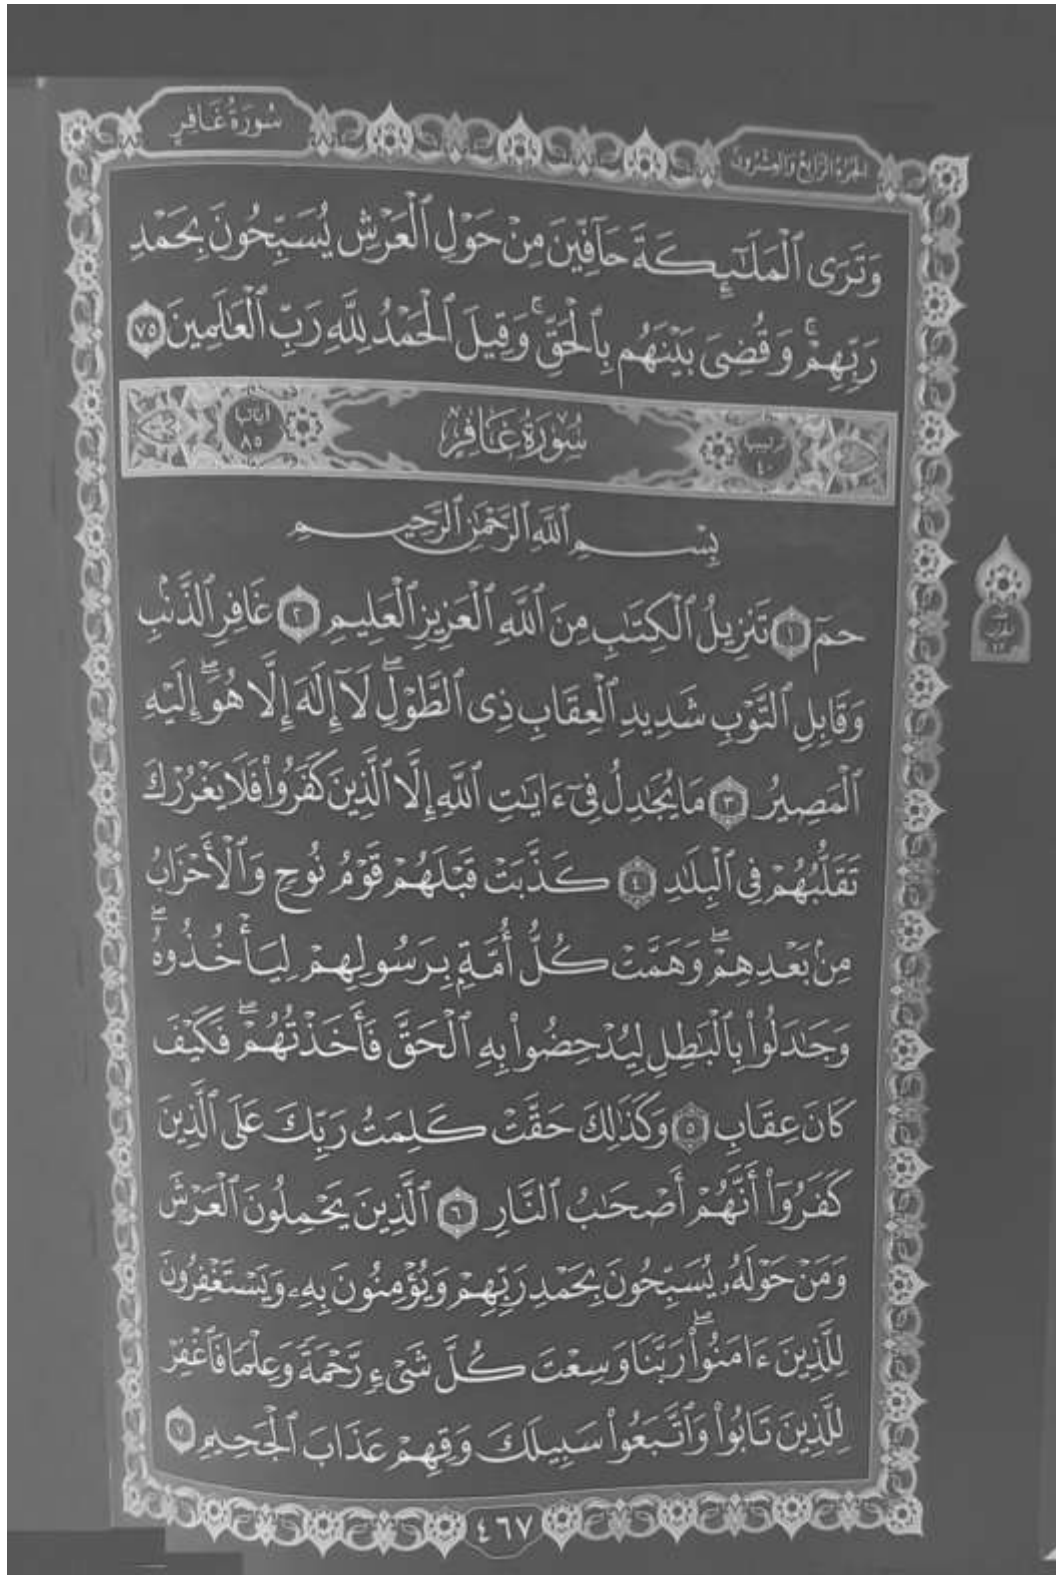 الجزء الرابع والعشرون
سُورَةُ غَافِرٍ
وَتَرَى ٱلْمَلَـٰٓئِكَةَ حَآفِّينَ مِنْ حَوْلِ ٱلْعَرْشِ يُسَبِّحُونَ بِحَمْدِ
رَبِّهِمْ ۚ وَقُضِىَ بَيْنَهُم بِٱلْحَقِّ ۚ وَقِيلَ ٱلْحَمْدُ لِلَّهِ رَبِّ ٱلْعَـٰلَمِينَ ٧٥
ترتيبها ٤٠ سُورَةُ غَافِرٍ آياتها ٨٥
بِسْمِ ٱللَّهِ ٱلرَّحْمَـٰنِ ٱلرَّحِيمِ
حمٓ ١ تَنزِيلُ ٱلْكِتَـٰبِ مِنَ ٱللَّهِ ٱلْعَزِيزِ ٱلْعَلِيمِ ٢ غَافِرِ ٱلذَّنۢبِ
وَقَابِلِ ٱلتَّوْبِ شَدِيدِ ٱلْعِقَابِ ذِى ٱلطَّوْلِ ۖ لَآ إِلَـٰهَ إِلَّا هُوَ ۖ إِلَيْهِ
ٱلْمَصِيرُ ٣ مَا يُجَـٰدِلُ فِىٓ ءَايَـٰتِ ٱللَّهِ إِلَّا ٱلَّذِينَ كَفَرُوا۟ فَلَا يَغْرُرْكَ
تَقَلُّبُهُمْ فِى ٱلْبِلَـٰدِ ٤ كَذَّبَتْ قَبْلَهُمْ قَوْمُ نُوحٍ وَٱلْأَحْزَابُ
مِنۢ بَعْدِهِمْ ۖ وَهَمَّتْ كُلُّ أُمَّةٍۭ بِرَسُولِهِمْ لِيَأْخُذُوهُ ۖ
وَجَـٰدَلُوا۟ بِٱلْبَـٰطِلِ لِيُدْحِضُوا۟ بِهِ ٱلْحَقَّ فَأَخَذْتُهُمْ ۖ فَكَيْفَ
كَانَ عِقَابِ ٥ وَكَذَٰلِكَ حَقَّتْ كَلِمَتُ رَبِّكَ عَلَى ٱلَّذِينَ
كَفَرُوٓا۟ أَنَّهُمْ أَصْحَـٰبُ ٱلنَّارِ ٦ ٱلَّذِينَ يَحْمِلُونَ ٱلْعَرْشَ
وَمَنْ حَوْلَهُۥ يُسَبِّحُونَ بِحَمْدِ رَبِّهِمْ وَيُؤْمِنُونَ بِهِۦ وَيَسْتَغْفِرُونَ
لِلَّذِينَ ءَامَنُوا۟ ۖ رَبَّنَا وَسِعْتَ كُلَّ شَىْءٍ رَّحْمَةً وَعِلْمًا فَٱغْفِرْ
لِلَّذِينَ تَابُوا۟ وَٱتَّبَعُوا۟ سَبِيلَكَ وَقِهِمْ عَذَابَ ٱلْجَحِيمِ ٧
٤٦٧